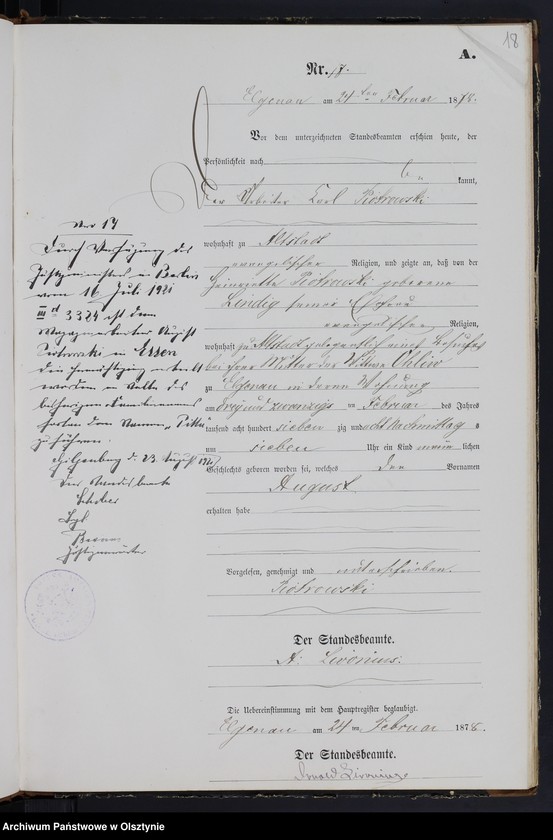 18
A.
Nr. 17.
Elgenau am 24ten Februar 1878.
Vor dem unterzeichneten Standesbeamten erschien heute, der
Persönlichkeit nach
be kannt,
Der Arbeiter Karl Piotrowski
wohnhaft zu Altstadt
evangelischer Religion, und zeigte an, daß von der
Henriette Piotrowski geborene
seiner Ehefrau
evangelischer Religion,
wohnhaft zu Altstadt gelegentlich eines Besuches
bei ihrer Mutter der Wittwe
zu Elgenau in deren Wohnung
am drei und zwanzigsten Februar des Jahres
tausend acht hundert sieben zig und acht Nachmittag s
um sieben Uhr ein Kind männ lichen
Geschlechts geboren worden sei, welches den Vornamen
August
erhalten habe
Vorgelesen, genehmigt und unterschrieben.
Piotrowski
Der Standesbeamte.
A. Livonius.
Die Uebereinstimmung mit dem Hauptregister beglaubigt.
Elgenau am 24ten Februar 1878.
Der Standesbeamte.
Livonius
Nro 17
Durch Verfügung des
Justizministers in Berlin
vom 16 Juli 1921
III d 3324 ist dem
August
Piotrowski in Essen
die Ermächtigung erteilt
worden an Stelle des
bisherigen Familiennamens
fortan den Namen
zu führen.
Gilgenburg d. 23. August 1921
Der Standesbeamte
Archiwum Państwowe w Olsztynie